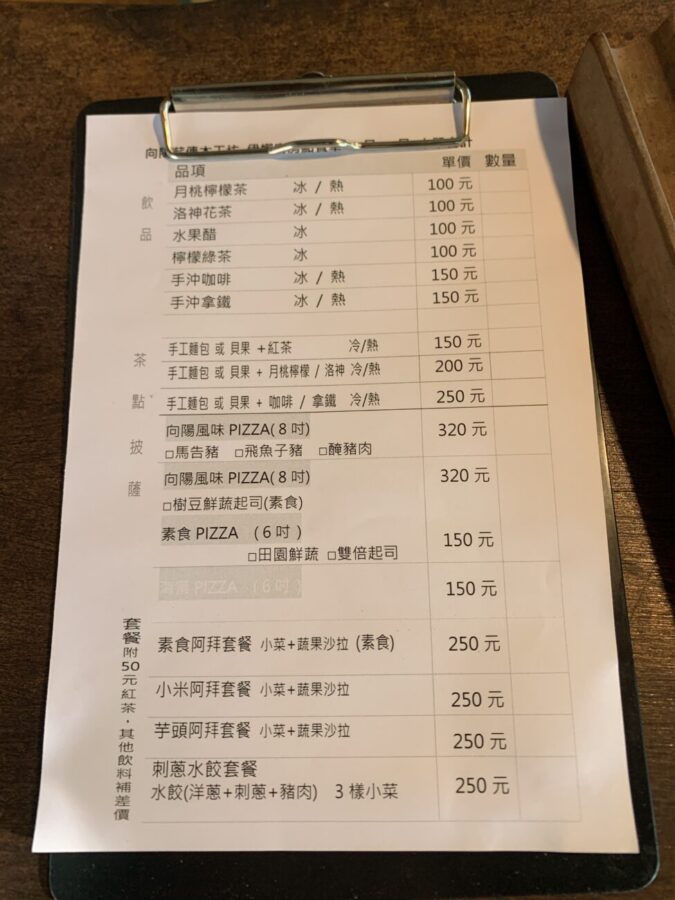 品項 單價 數量
飲品
月桃檸檬茶 冰 / 熱 100 元
洛神花茶 冰 / 熱 100 元
水果醋 冰 100 元
檸檬綠茶 冰 100 元
手沖咖啡 冰 / 熱 150 元
手沖拿鐵 冰 / 熱 150 元
茶點
手工麵包 或 貝果 +紅茶 冷/熱 150 元
手工麵包 或 貝果 + 月桃檸檬 / 洛神 冷/熱 200 元
手工麵包 或 貝果 + 咖啡 / 拿鐵 冷/熱 250 元
披薩
向陽風味 PIZZA( 8 吋) 320 元
□馬告豬 □飛魚子豬 □醃豬肉
向陽風味 PIZZA( 8 吋) 320 元
□樹豆鮮蔬起司(素食)
素食 PIZZA ( 6 吋 ) 150 元
□田園鮮蔬 □雙倍起司
PIZZA ( 6 吋 ) 150 元
套餐附50元紅茶，其他飲料補差價
素食阿拜套餐 小菜+蔬果沙拉 (素食) 250 元
小米阿拜套餐 小菜+蔬果沙拉 250 元
芋頭阿拜套餐 小菜+蔬果沙拉 250 元
刺蔥水餃套餐
水餃(洋蔥+刺蔥+豬肉) 3 樣小菜 250 元